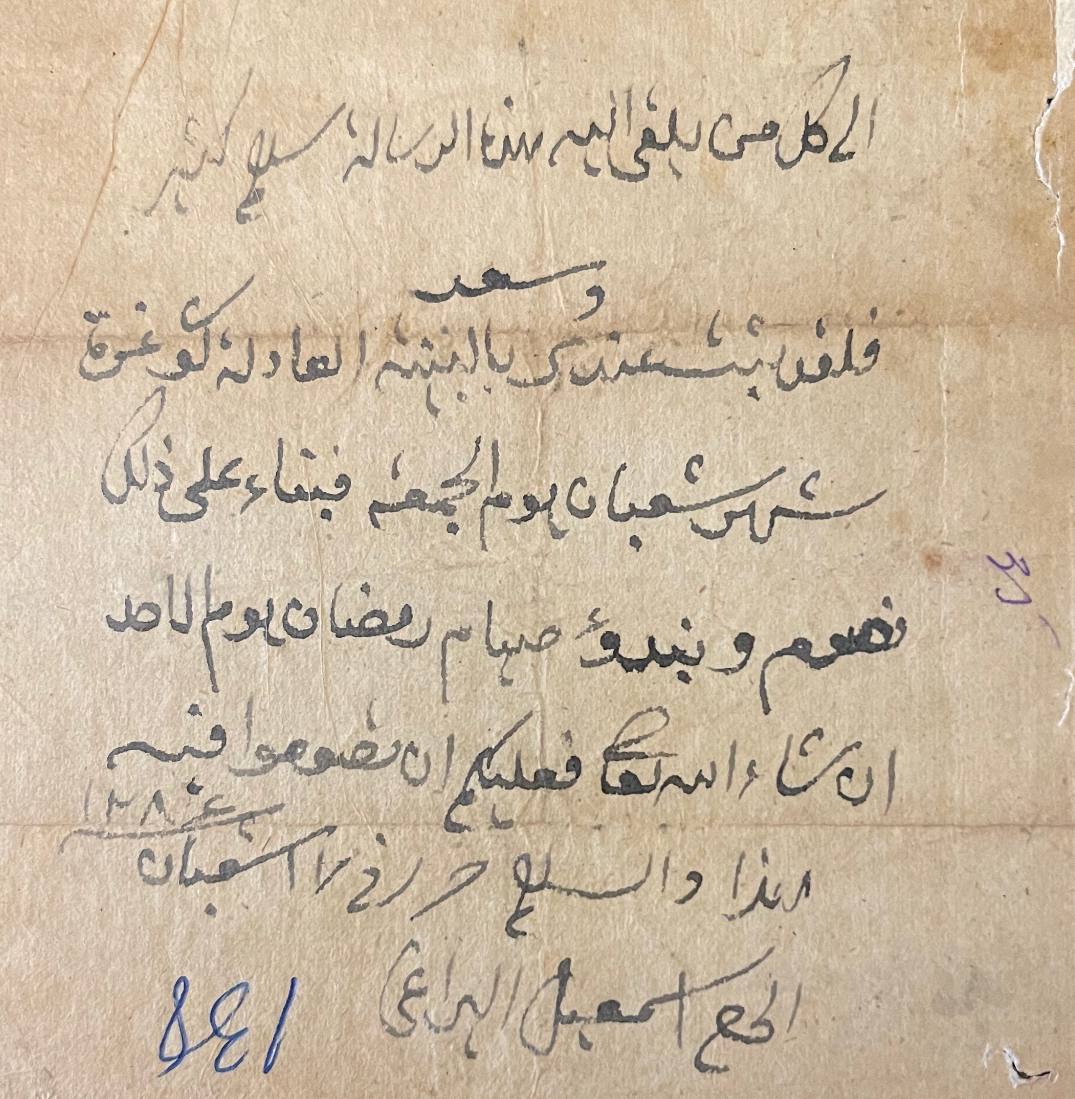 الى كل من يلقى اليه هذه الرسالة سلام كثير
وسعد
فلقد ثبت عندكم بالبينة العادلة كو غرة
شهر شعبان يوم الجمعة فبناء على ذلك
نصوم ونبدؤ صيام رمضان يوم الاحد
ان شاء الله تعالى فعليكم ان تصوموا فيه
هذا والسلام حرر في شعبان
١٣٨٤
الحاج اسمعيل